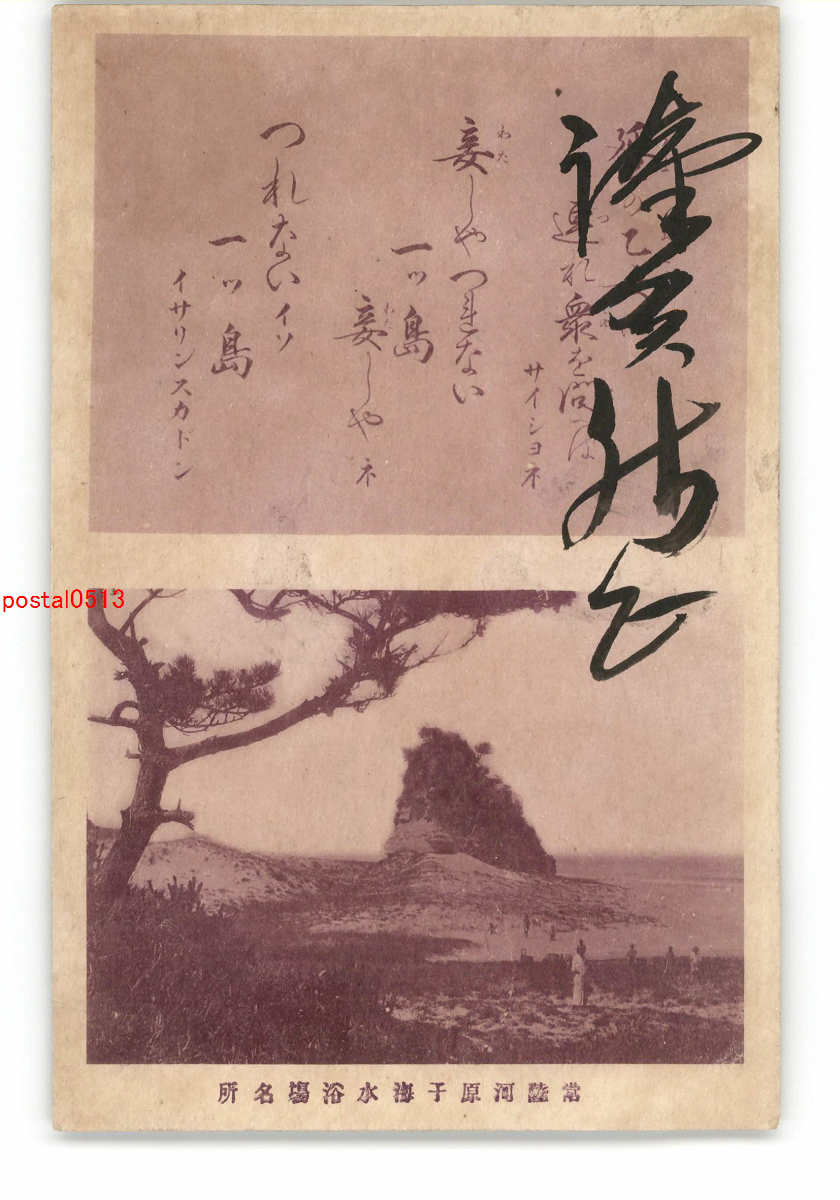 謹賀新正
磯の乙
連れ衆を問へば
サイショネ
妾しやつれない
わた
一ッ島
妾しやネ
わた
つれないイソ
一ッ島
イサリンスカドン
postal0513
常陸河原子海水浴場名所